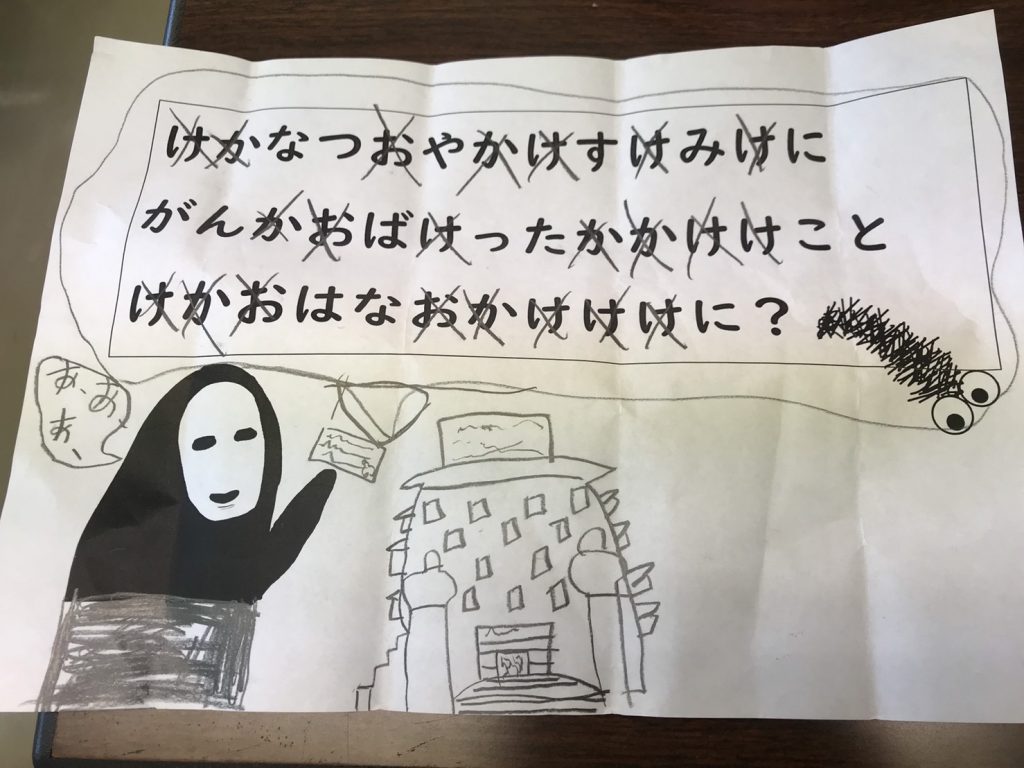 けかなつおやかけすけみけに
がんかおばけったかかけけこと
けかおはなおかけけけに？